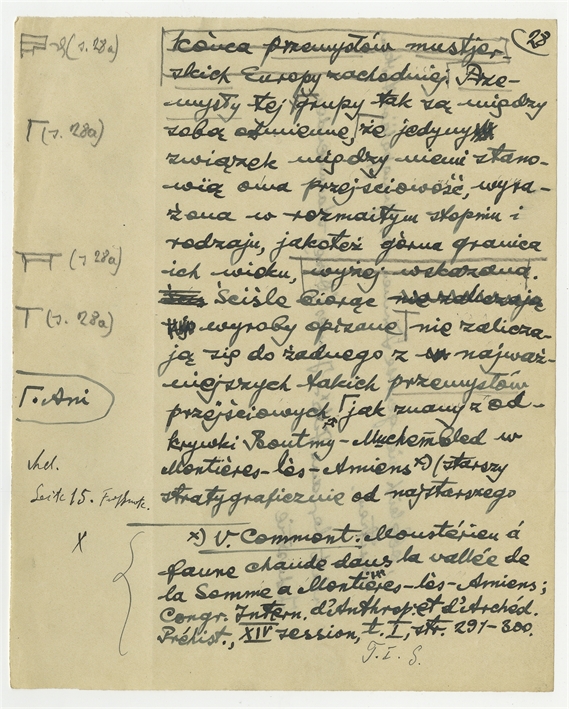 28
końca przemysłów mustjer-
skich Europy zachodniej. Prze-
mysły tej grupy tak są między
sobą odmienne, że jedyny
związek między niemi stano-
wią owa przejściowość, wyra-
żona w rozmaitym stopniu i
rodzaju, jakoteż górna granica
ich wieku, wyżej wskazana.
Ściśle biorąc nie zaliczają
wyroby opisane nie zalicza-
ją się do żadnego z najważ-
niejszych takich przemysłów
przejściowych, jak znany z od-
krywki Boutmy-Muchembled w
Montières-lès-Amiens x) (starszy
stratygraficznie od najstarszego
x) V. Commont. Moustérien á
faune chaude dans la vallée de
la Somme a Montières-lès-Amiens;
Congr. Intern. d'Anthrop. et d'Archéd.
Préhist., XIV session, t. I, str. 291-300.
T. I. S.
(s. 28a)
Γ (s. 28a)
(s. 28a)
T (s. 28a)
Γ. Ani
Seite 15.
X